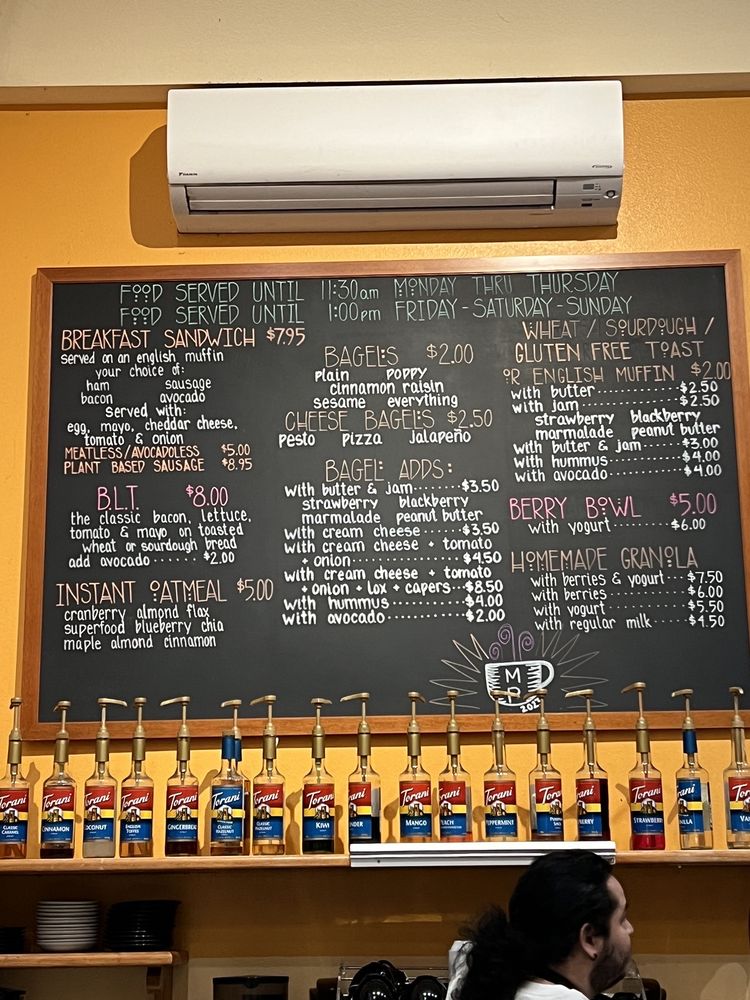 DAIKIN
FOOD SERVED UNTIL 11:30am MONDAY THRU THURSDAY
FOOD SERVED UNTIL 1:00pm FRIDAY-SATURDAY-SUNDAY
BREAKFAST SANDWICH $7.95
served on an english muffin
your choice of:
ham sausage
bacon avocado
served with:
egg, mayo, cheddar cheese,
tomato & onion
MEATLESS/AVOCADOLESS $5.00
PLANT BASED SAUSAGE $8.95
B.L.T. $8.00
the classic bacon, lettuce,
tomato & mayo on toasted
wheat or sourdough bread
add avocado ...... $2.00
INSTANT OATMEAL $5.00
cranberry almond flax
superfood blueberry chia
maple almond cinnamon
BAGELS $2.00
plain poppy
cinnamon raisin
sesame everything
CHEESE BAGELS $2.50
pesto pizza jalapeño
BAGEL ADDS:
with butter & jam ....... $3.50
strawberry blackberry
marmalade peanut butter
with cream cheese ....... $3.50
with cream cheese + tomato
+ onion ............ $4.50
with cream cheese + tomato
+ onion + lox + capers .. $8.50
with hummus ........ $4.00
with avocado ........ $2.00
WHEAT / SOURDOUGH /
GLUTEN FREE TOAST
OR ENGLISH MUFFIN $2.00
with butter ........ $2.50
with jam ........ $2.50
strawberry blackberry
marmalade peanut butter
with butter & jam ..... $3.00
with hummus ........ $4.00
with avocado ........ $4.00
BERRY BOWL $5.00
with yogurt ....... $6.00
HOMEMADE GRANOLA
with berries & yogurt ... $7.50
with berries ....... $6.00
with yogurt ....... $5.50
with regular milk .... $4.50
M
R
2021
Torani CLASSIC CARAMEL
Torani CINNAMON
Torani COCONUT
Torani ENGLISH TOFFEE
Torani GINGERBREAD
Torani CLASSIC HAZELNUT
Torani CLASSIC HAZELNUT
Torani KIWI
Torani
Torani MANGO
Torani PEACH
Torani PEPPERMINT
Torani
Torani
Torani STRAWBERRY
Torani VANILLA
Torani